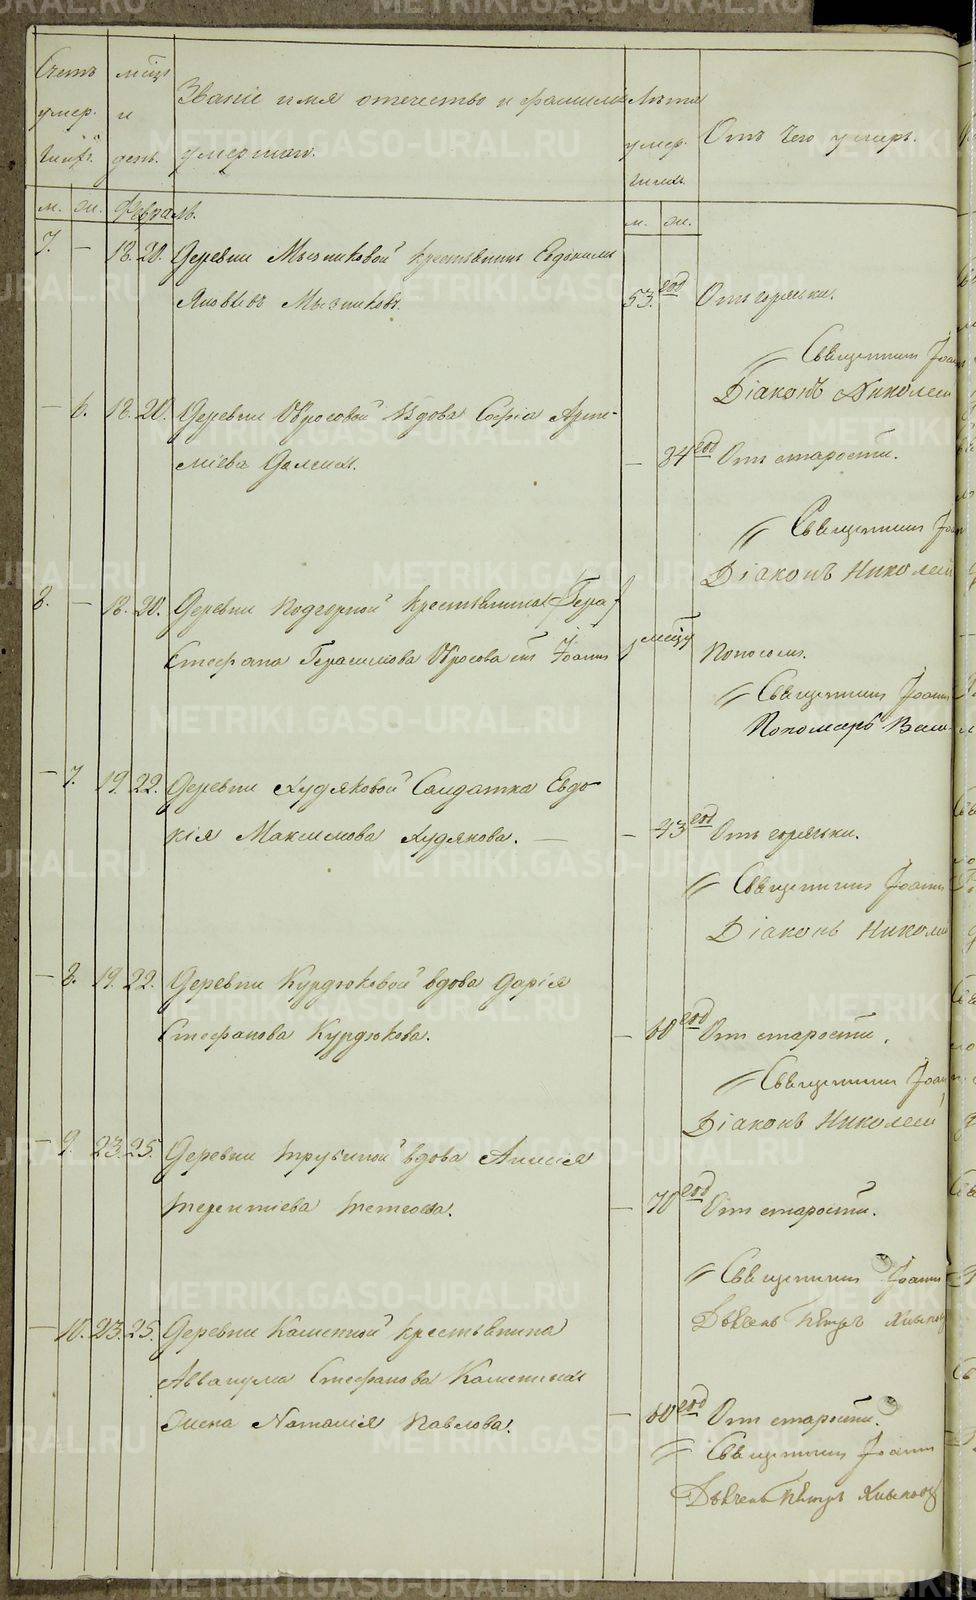 Счетъ умер- шихъ.
мѣцъ и день.
Званіе имя отечество и фамилия умершаго.
Лѣта умер- шихъ
Отъ чего умеръ.
м. ж. Февраль.
м. ж.
7. — 18. 20. Деревни Мызниковой крестьянинъ Евдокимъ
Яковлевъ Мызниковъ.
53. год Отъ горячки.
Священникъ
Діаконъ Николай
— 6. 18. 20. Деревни Абросовой вдова Софія Арте-
міева
— 84 год Отъ старости.
Священникъ
Діаконъ Николай
8. — 18. 20. Деревни Подгорной крестьянина
Стефана Герасимова Абросова сынъ Іоаннъ
1 мѣсяц Поносомъ.
Священникъ Іоаннъ
Пономарь
— 7. 19. 22. Деревни Худяковой Солдатка Евдо-
кія Максимова Худякова. —
— 43 год Отъ горячки.
Священникъ Іоаннъ
Діаконъ Николай
— 8. 19. 22. Деревни Курдюковой вдова Дарія
Стефанова Курдюкова.
— 60 год Отъ старости.
Священникъ
Діаконъ Николай
— 9. 23. 25. Деревни Трубиной вдова Анисія
Терентіева
— 70 год Отъ старости.
Священникъ Іоаннъ
Петръ
— 10. 23. 25. Деревни Каменной крестьянина
Аввакума Стефанова Каменныхъ
жена Наталія Павлова.
— 60 год Отъ старости.
Священникъ Іоаннъ
Петръ
METRIKI.GASO-URAL.RU